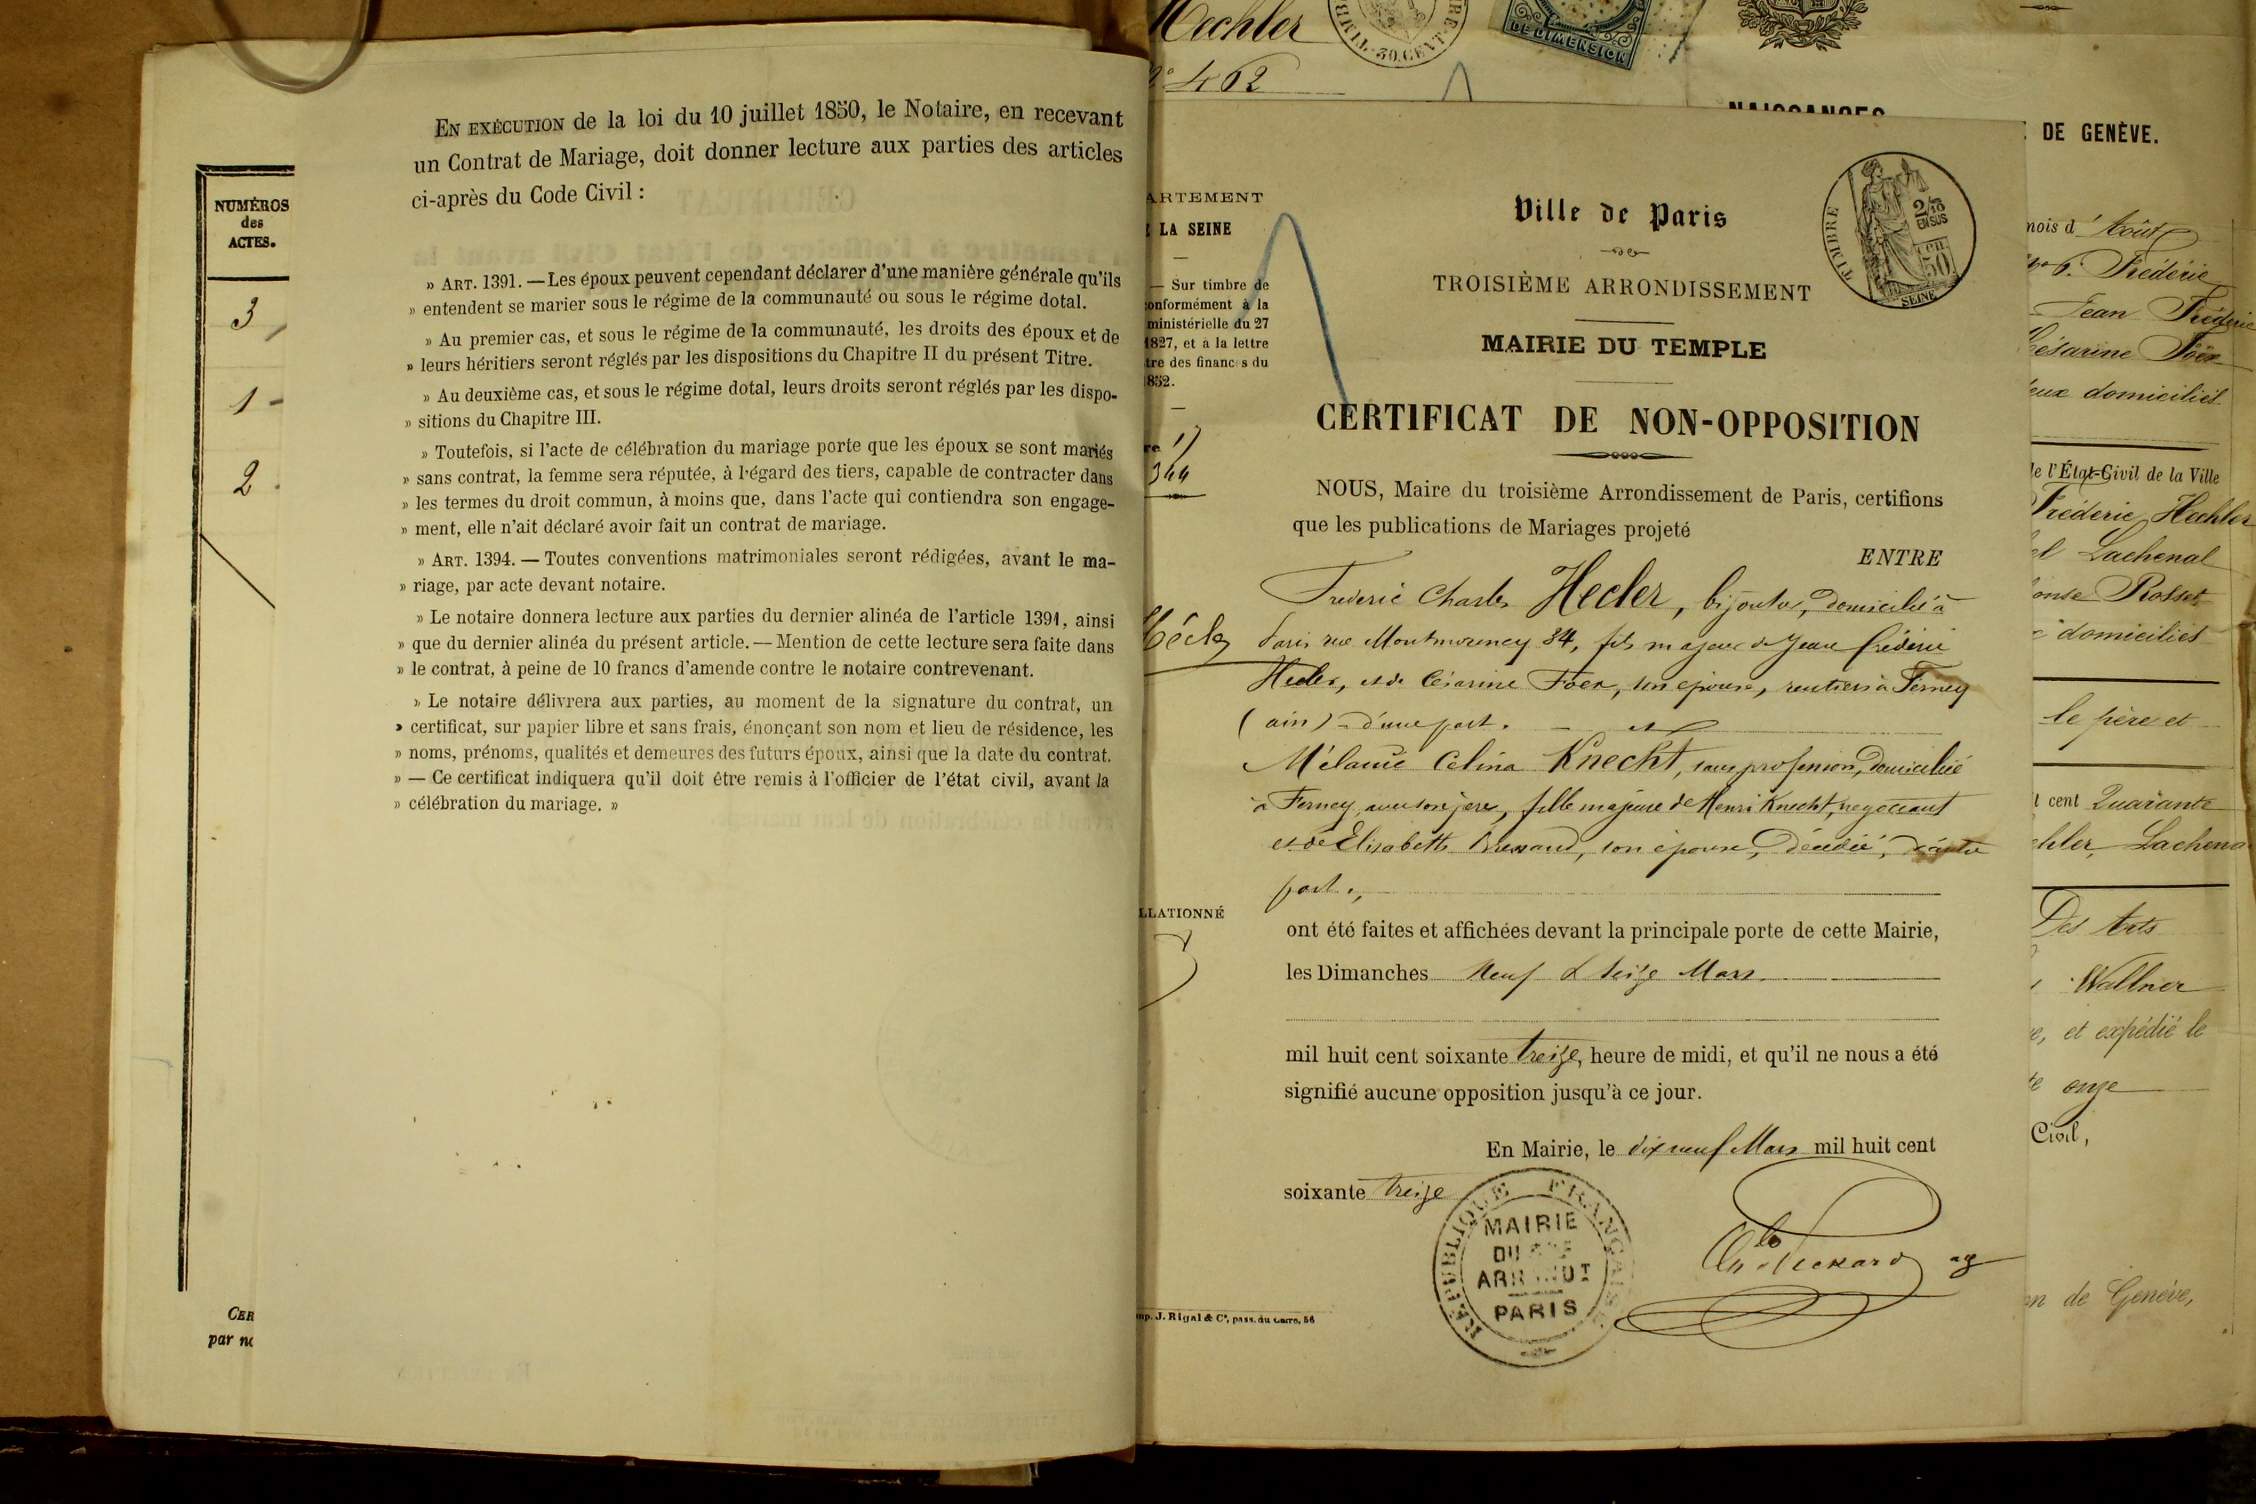 EN EXÉCUTION de la loi du 10 juillet 1850, le Notaire, en recevant
un Contrat de Mariage, doit donner lecture aux parties des articles
ci-après du Code Civil :
» ART. 1391. — Les époux peuvent cependant déclarer d'une manière générale qu'ils
» entendent se marier sous le régime de la communauté ou sous le régime dotal.
» Au premier cas, et sous le régime de la communauté, les droits des époux et de
» leurs héritiers seront réglés par les dispositions du Chapitre II du présent Titre.
» Au deuxième cas, et sous le régime dotal, leurs droits seront réglés par les dispo-
» sitions du Chapitre III.
» Toutefois, si l'acte de célébration du mariage porte que les époux se sont mariés
» sans contrat, la femme sera réputée, à l'égard des tiers, capable de contracter dans
» les termes du droit commun, à moins que, dans l'acte qui contiendra son engage-
» ment, elle n'ait déclaré avoir fait un contrat de mariage.
» ART. 1394. — Toutes conventions matrimoniales seront rédigées, avant le ma-
» riage, par acte devant notaire.
» Le notaire donnera lecture aux parties du dernier alinéa de l'article 1391, ainsi
» que du dernier alinéa du présent article. — Mention de cette lecture sera faite dans
» le contrat, à peine de 10 francs d'amende contre le notaire contrevenant.
» Le notaire délivrera aux parties, au moment de la signature du contrat, un
» certificat, sur papier libre et sans frais, énonçant son nom et lieu de résidence, les
» noms, prénoms, qualités et demeures des futurs époux, ainsi que la date du contrat.
» — Ce certificat indiquera qu'il doit être remis à l'officier de l'état civil, avant la
» célébration du mariage. »
NUMÉROS
des
ACTES.
3
1
2
CER
par no
Hechler
462
TIMBRE 30 CENT.
DE DIMENSION
ARTEMENT
LA SEINE
— Sur timbre de
conformément à la
ministérielle du 27
1827, et à la lettre
tre des finances du
1852.
344
LLATIONNÉ
mp. J. Rigal & Cᵉ, pass. du Caire, 56
Ville de Paris
TIMBRE
2/10
EN SUS
50
SEINE
TROISIÈME ARRONDISSEMENT
MAIRIE DU TEMPLE
CERTIFICAT DE NON-OPPOSITION
NOUS, Maire du troisième Arrondissement de Paris, certifions
que les publications de Mariages projeté
ENTRE
Frederic Charles Hecler, bijoutier, domicilié à
Paris rue Montmorency 34, fils majeur de Jean frédéric
Hecler, et de Césarine Foex, son épouse, rentiers à Ferney
(ain) d'une part. — et
Mélanie Célina Knecht, sans profession, domiciliée
à Ferney, avec son père, fille majeure de Henri Knecht, negociant
et de Elisabeth son épouse, décédée, d'autre
part.,
ont été faites et affichées devant la principale porte de cette Mairie,
les Dimanches Neuf & Seize Mars
mil huit cent soixante treize, heure de midi, et qu'il ne nous a été
signifié aucune opposition jusqu'à ce jour.
En Mairie, le dix neuf Mars mil huit cent
soixante treize
RÉPUBLIQUE FRANÇAISE
MAIRIE
DU
ARR
PARIS
NAISSANCES
DE GENÈVE.
mois d'Août
Frédéric
Jean Fréderic
Césarine Foëx
eux domiciliés
de l'État-Civil de la Ville
Fréderic Hechler
Lachenal
Rosset
domiciliés
le père et
t cent Quarante
chler, Lachena
Des Arts
Wallner
e, et expédié le
te onze
Civil,
on de Genève,